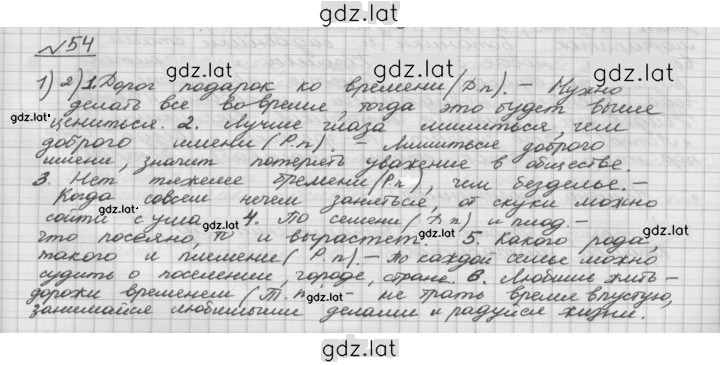 gdz.lat
№54
1) 2) 1. Дорог подарок ко времени (Д.п). – Нужно
делать все вовремя, тогда это будет выше
цениться. 2. Лучше глаза лишиться, чем
доброго имени (Р.п). – Лишиться доброго
имени, значит потерять уважение в обществе.
3. Нет тяжелее бремени (Р.п), чем безделье. –
Когда совсем нечем заняться, от скуки можно
сойти с ума. 4. По семени (Д.п) и плод. –
что посеяно, то и вырастет. 5. Какого рода,
такого и племени (Р.п). – по каждой семье можно
судить о поселении, городе, стране. 6. Любишь жить –
дорожи временем (Т.п. – не трать время впустую,
занимайся любимыми делами и радуйся жизни.
gdz.lat
gdz.lat
gdz.lat
gdz.lat
gdz.lat
gdz.lat
gdz.lat
gdz.lat
gdz.lat
gdz.lat